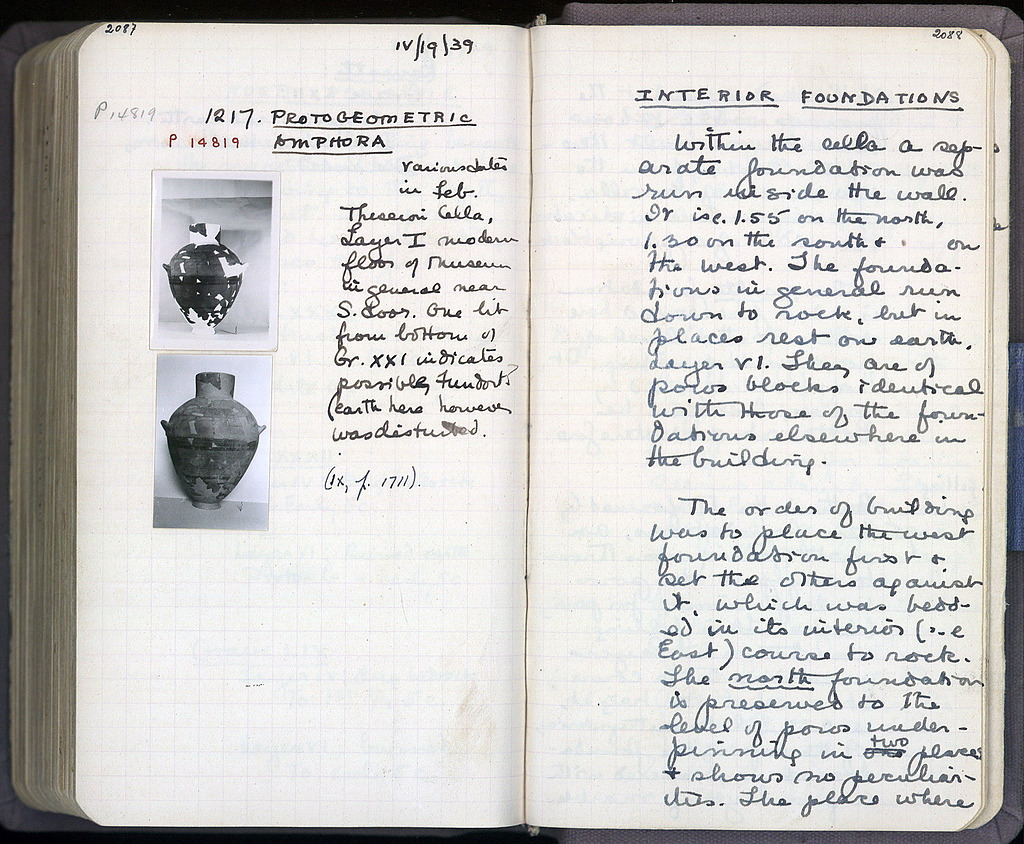 2087
IV/19/39
P 14819
1217. PROTOGEOMETRIC
P 14819 AMPHORA
various dates
in Feb.
Theseion Cella,
Layer I modern
floor of Museum
in general near
S. door. One bit
from bottom of
Gr. XXI indicates
possible Fundort?
(earth here however
was disturbed.
(IX, p. 1711).
2088
INTERIOR FOUNDATIONS
Within the cella a sep-
arate foundation was
run inside the wall.
It is c. 1.55 on the north,
1.30 on the south & . on
the west. The founda-
tions in general run
down to rock, but in
places rest on earth,
Layer VI. They are of
poros blocks identical
with those of the foun-
dations elsewhere in
the building.
The order of building
was to place the west
foundation first &
set the others against
it, which was bedd-
ed in its interior (i.e
East) course to rock.
The north foundation
is preserved to the
level of poros under-
pinning in two places
& shows no peculiar-
ities. The place where